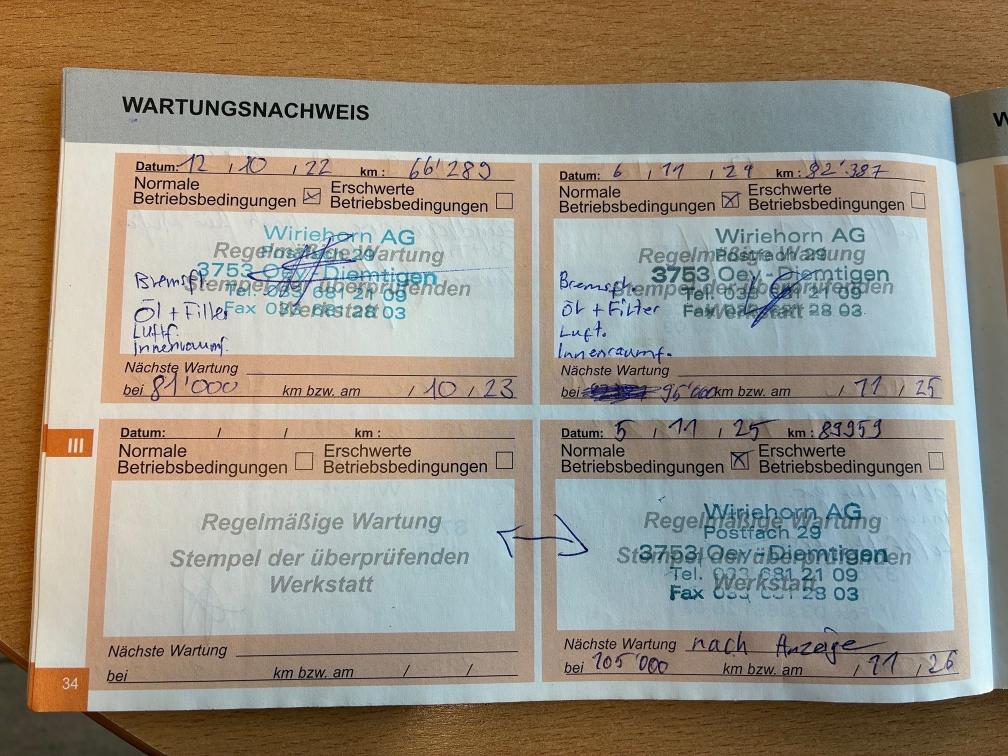 WARTUNGSNACHWEIS
W
Datum: 12 / 10 / 22 km : 66'289
Normale Betriebsbedingungen ☒ Erschwerte Betriebsbedingungen ☐
Regelmäßige Wartung
Stempel der überprüfenden
Werkstatt
Wiriehorn AG
Postfach 29
3753 Oey-Diemtigen
Tel. 033 681 21 09
Fax 033 681 28 03
Bremsfl.
Öl + Filter
Luftf.
Innenraumf.
Nächste Wartung
bei 81'000 km bzw. am / 10 / 23
Datum: 6 / 11 / 24 km :
Normale Betriebsbedingungen ☒ Erschwerte Betriebsbedingungen ☐
Regelmäßige Wartung
Stempel der überprüfenden
Werkstatt
Wiriehorn AG
Postfach 29
3753 Oey-Diemtigen
Tel. 033 681 21 09
Fax 033 681 28 03
Bremsfl.
Öl + Filter
Luft.
Innenraumf.
Nächste Wartung
bei 95'000 km bzw. am / 11 / 25
III
Datum: / / km :
Normale Betriebsbedingungen ☐ Erschwerte Betriebsbedingungen ☐
Regelmäßige Wartung
Stempel der überprüfenden
Werkstatt
Nächste Wartung
bei km bzw. am / /
Datum: 5 / 11 / 25 km : 89959
Normale Betriebsbedingungen ☒ Erschwerte Betriebsbedingungen ☐
Regelmäßige Wartung
Stempel der überprüfenden
Werkstatt
Wiriehorn AG
Postfach 29
3753 Oey-Diemtigen
Tel. 033 681 21 09
Fax 033 681 28 03
Nächste Wartung nach Anzeige
bei 105'000 km bzw. am / 11 / 26
34